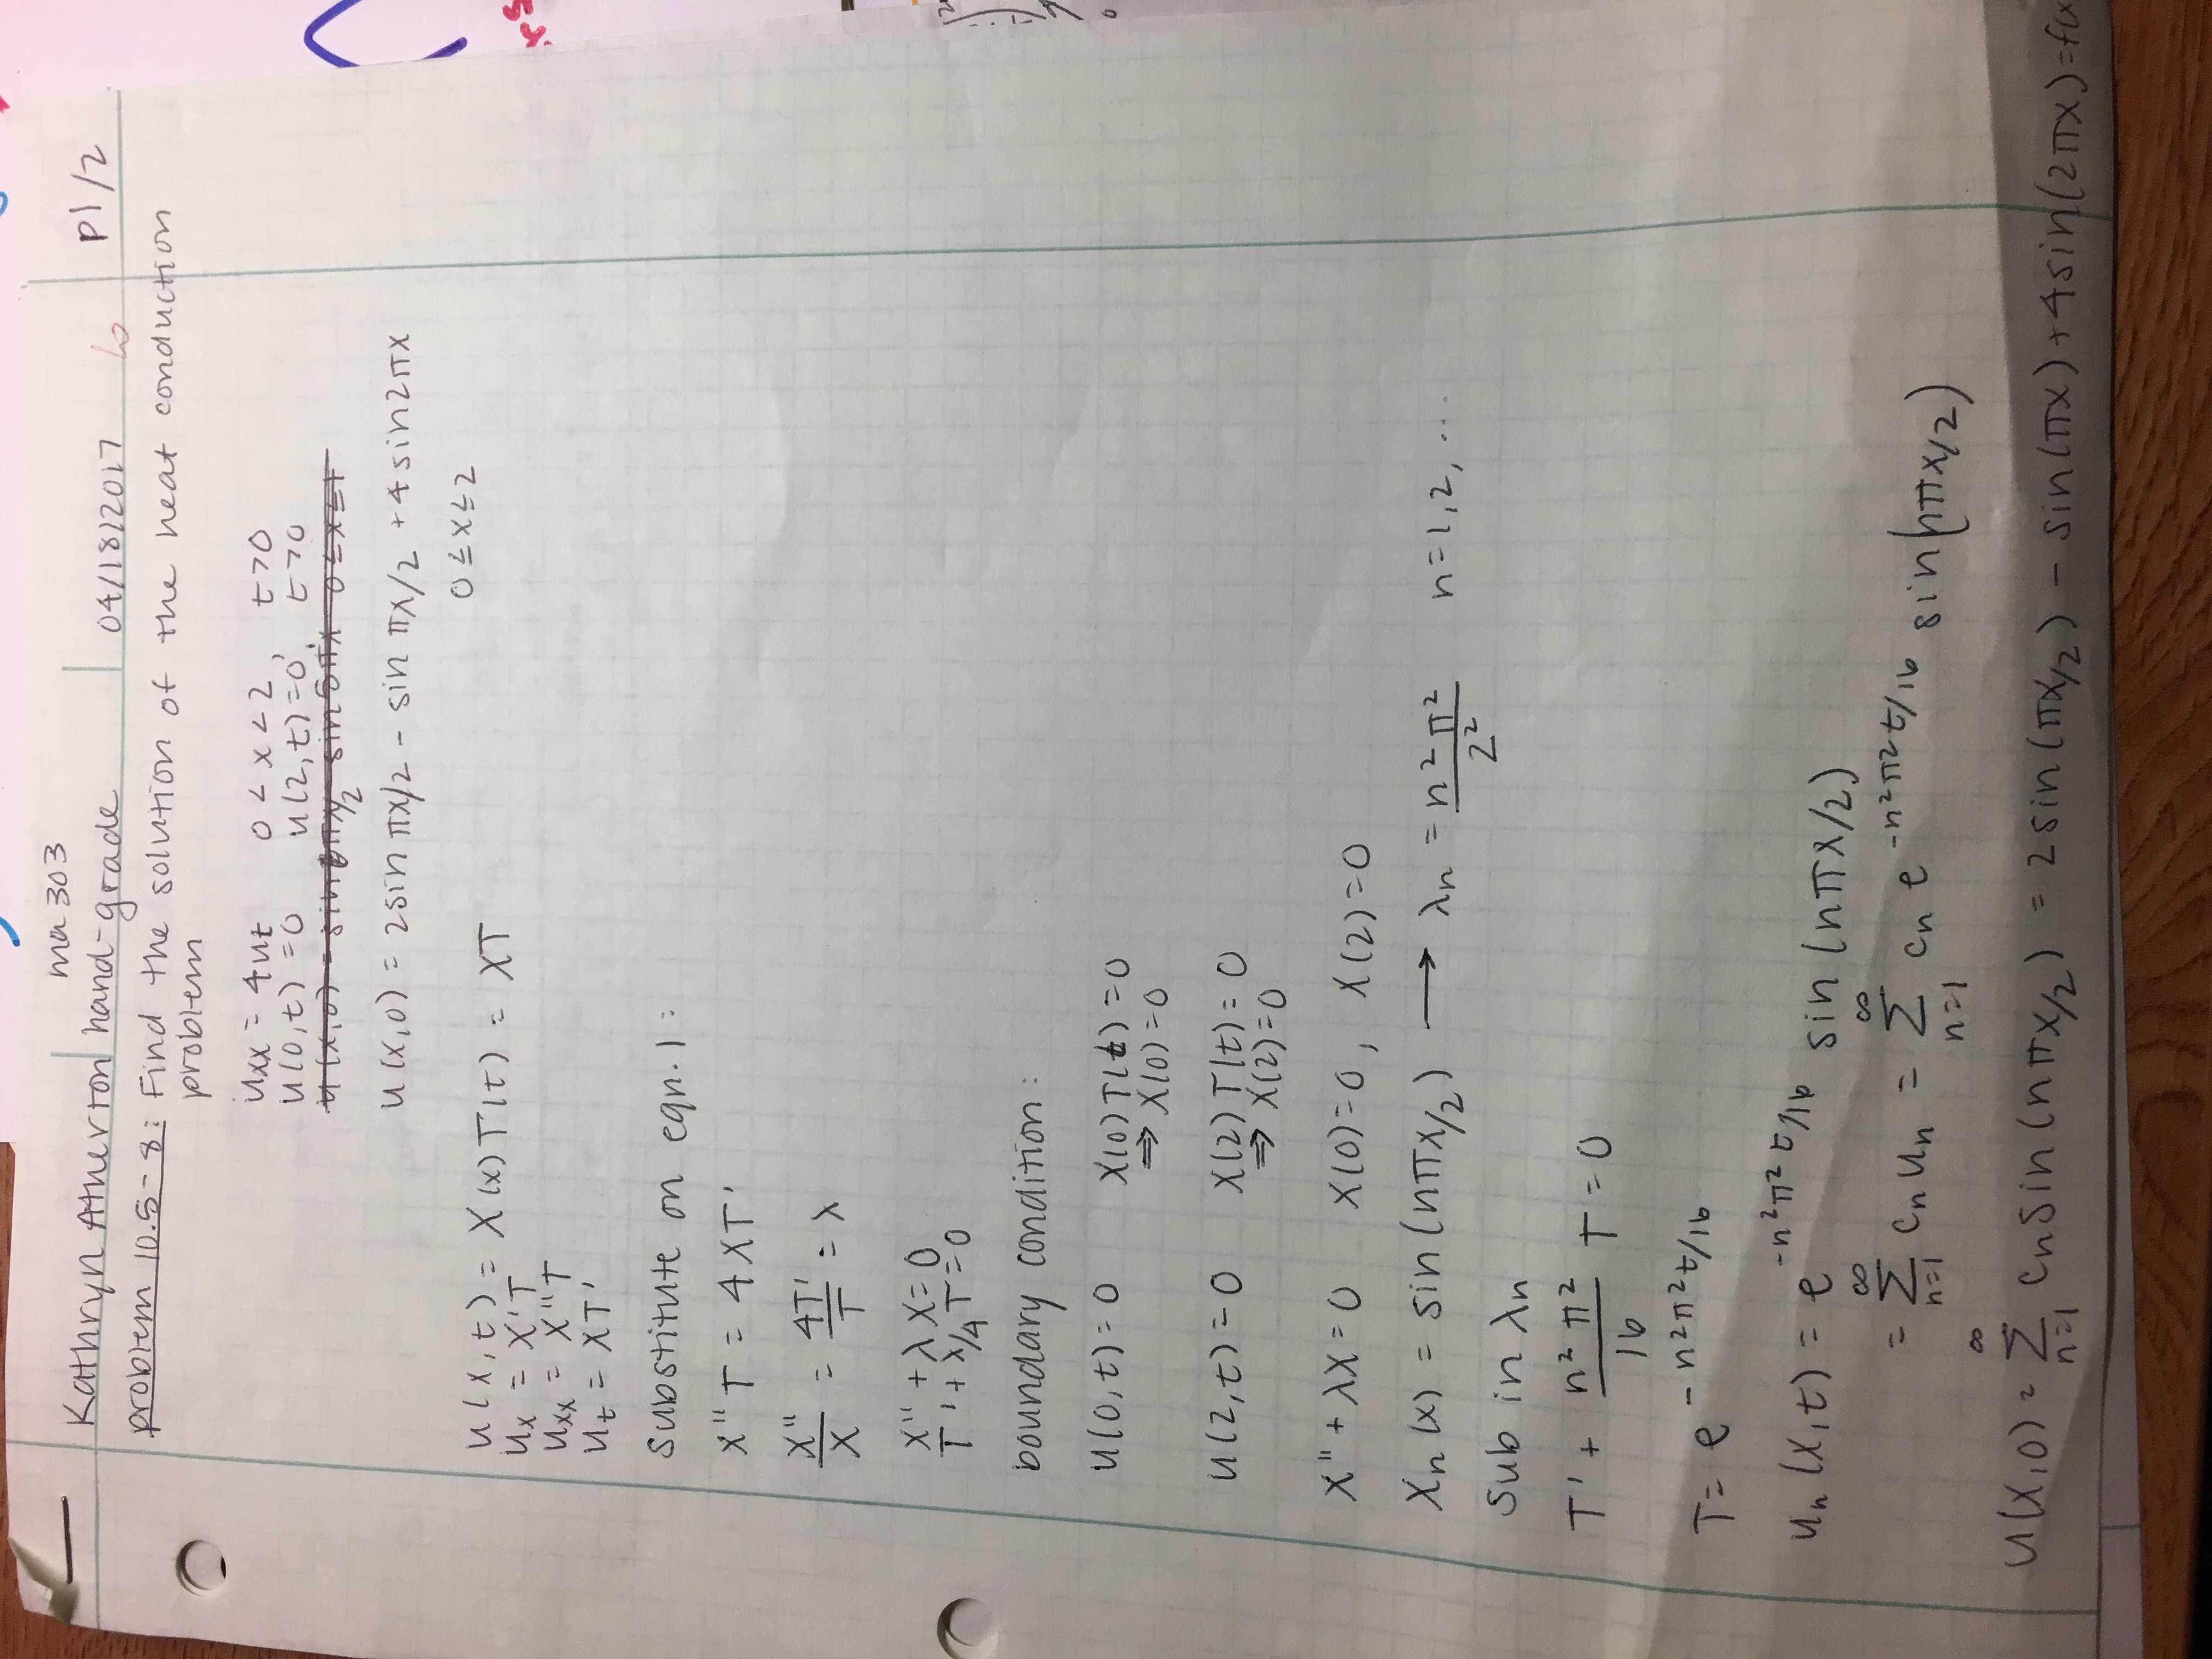 ma 303
Kathryn Atherton hand-grade 04/18/2017 6 p1/2
problem 10.5-8: Find the solution of the heat conduction
problem
uxx = 4ut 0 < x < 2, t>0
u(0,t) = 0 u(2,t)=0, t>0
u(x,0) = 2sin πx/2 - sin πx/2 + 4 sin2πx
0 ≤ x ≤ 2
u(x,t) = X(x)T(t) = XT
ux = X'T
uxx = X"T
ut = XT'
substitute on eqn. 1:
X"T = 4XT'
X"/X = 4T'/T = λ
X" + λX = 0
T' + λ/4 T = 0
boundary condition:
u(0,t) = 0 X(0)T(t) = 0
⇒ X(0) = 0
u(2,t) = 0 X(2)T(t) = 0
⇒ X(2) = 0
X" + λX = 0 X(0)=0, X(2)=0
Xn(x) = sin(nπx/2) → λn = n²π²/2² n=1,2,...
Sub in λn
T' + n²π²/16 T = 0
T = e^-n²π²t/16
un(x,t) = e^-n²π²t/16 sin(nπx/2)
= ∞Σn=1 cn un = ∞Σn=1 cn e^-n²π²t/16 sin(nπx/2)
u(x,0) = ∞Σn=1 cn sin(nπx/2) = 2sin(πx/2) - sin(πx) + 4sin(2πx) = f(x